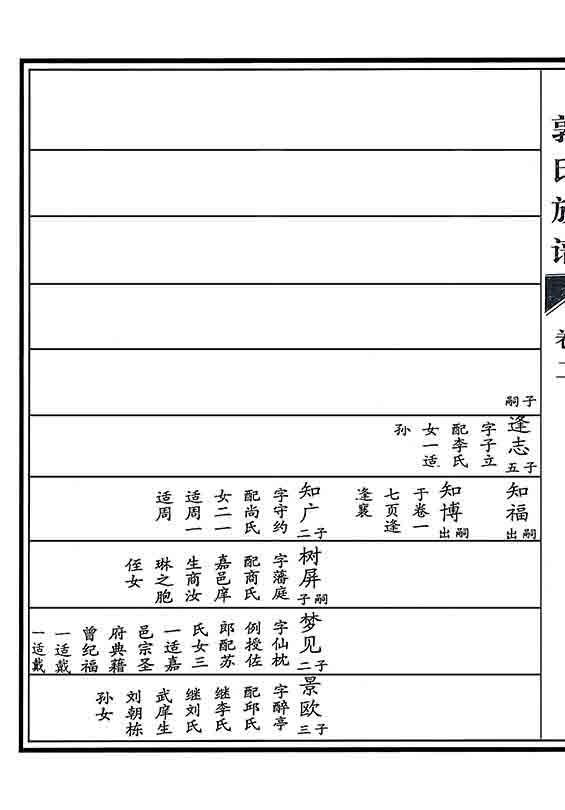 郭氏族谱
卷二
嗣子
逢志
五子
字子立
配李氏
女一适
孙
知福
出嗣
知博
出嗣
于卷一
七页逢
逢襄
知广
二子
字守约
配尚氏
女二一
适周一
适周
树屏
子嗣
字藩庭
配商氏
嘉邑庠
生商汝
琳之胞
侄女
梦见
二子
字仙枕
例授佐
郎配苏
氏女三
一适嘉
邑宗圣
府典藉
曾纪福
一适戴
一适戴
景欧
三子
字醉亭
配邱氏
继李氏
继刘氏
武庠生
刘朝栋
孙女